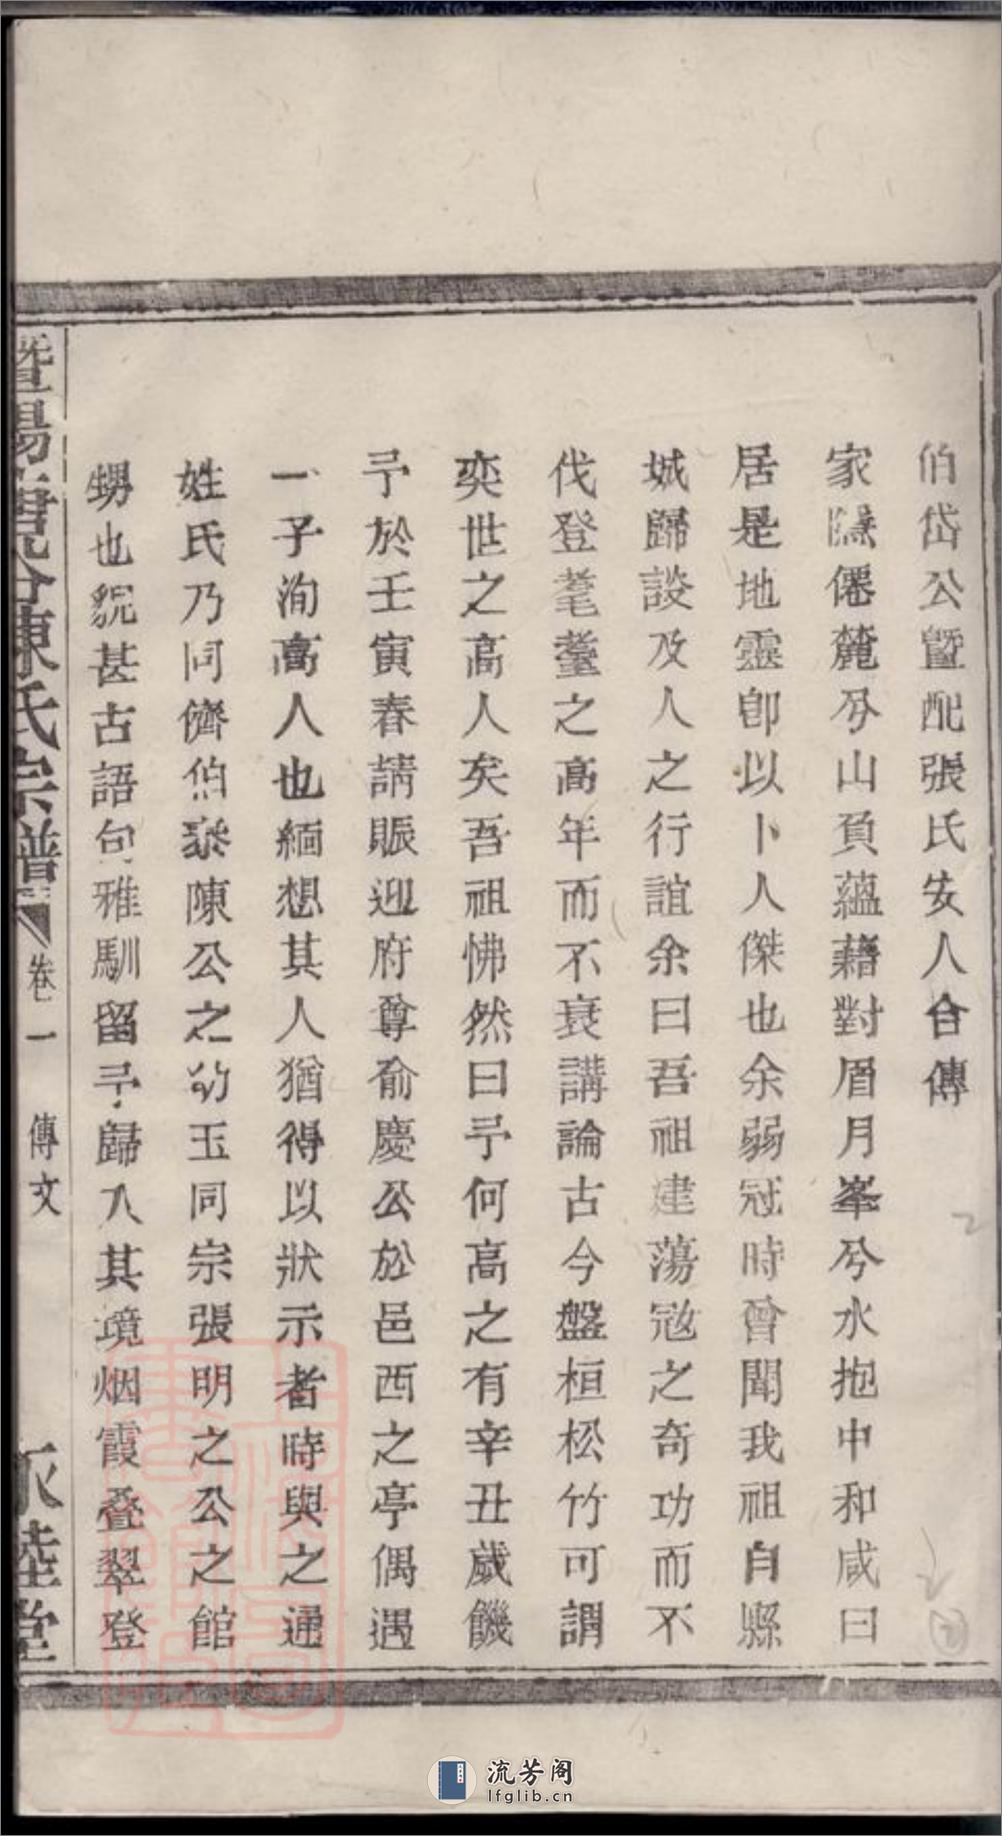 伯岱公曁配張氏安人合傳
家隱僊麓兮山負蘊藉對眉月峯兮水抱中和咸曰
居是地靈卽以卜人傑也余弱冠時曾聞我祖自縣
城歸談及人之行誼余曰吾祖建蕩寇之奇功而不
伐登耄耋之高年而不衰講論古今盤桓松竹可謂
奕世之高人矣吾祖怫然曰予何高之有辛丑歲饑
予於壬寅春請賑迎府尊俞慶公於邑西之亭偶遇
一子洵高人也緬想其人猶得以狀示者時與之通
姓氏乃同儕伯泰陳公之幼玉同宗張明之公之館
甥也貌甚古語句雅馴留予歸入其境烟霞叠翠登
暨陽 陳氏宗譜
卷一
傳文
睦堂
流芳阁
lfglib.cn